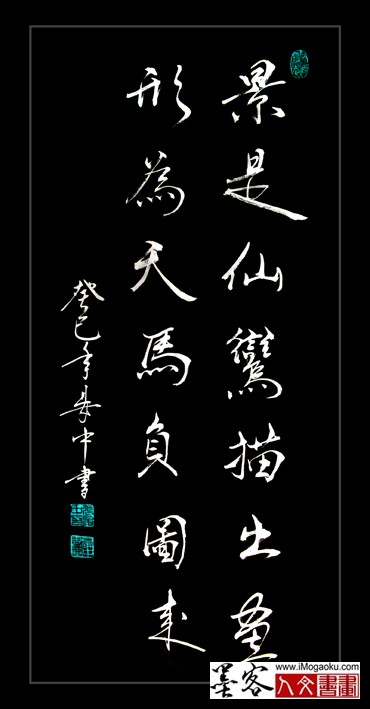 景是仙鸞描出畫
形為天馬負圖來
癸巳年中書
墨客
www.iMogaoku.com
人文書畫